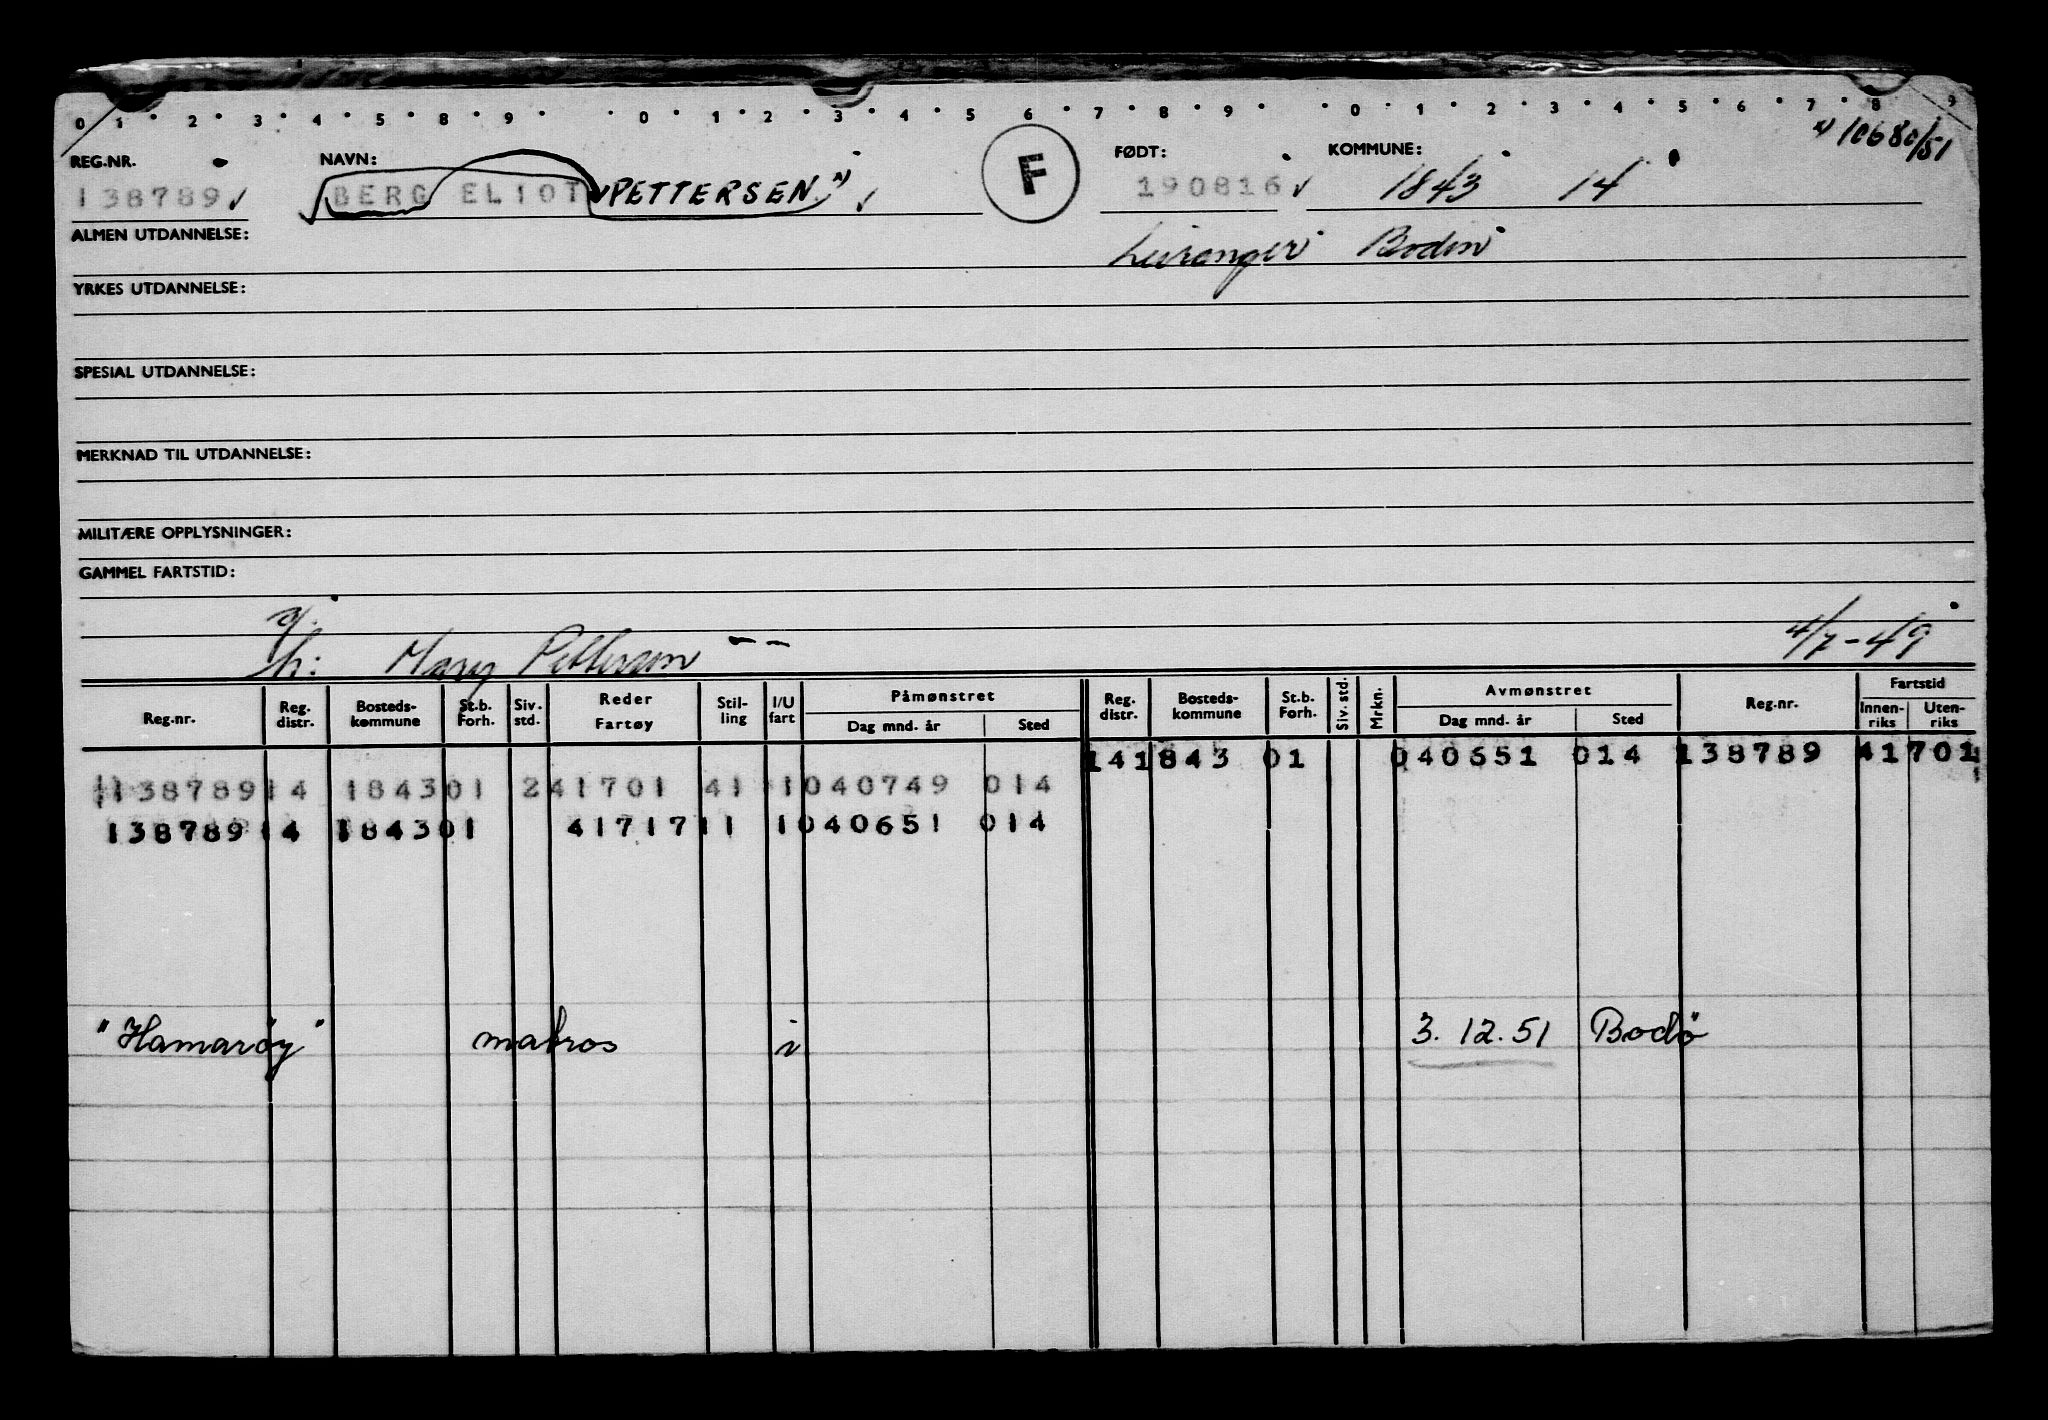 0 1 2 3 4 5 8 9 0 1 2 3 4 5 6 7 8 9 0 1 2 3 4 5 6 7 8 9
x) 10680/51
REG.NR. NAVN: F FØDT: KOMMUNE:
138789 BERG ELIOT PETTERSEN x) 190816 1843 14
ALMEN UTDANNELSE: Leiranger Bodin
YRKES UTDANNELSE:
SPESIAL UTDANNELSE:
MERKNAD TIL UTDANNELSE:
MILITÆRE OPPLYSNINGER:
GAMMEL FARTSTID:
g.
h: Mary Pettersen -- 4/7-49
Reg.nr. Reg. distr. Bosteds-kommune St.b. Forh. Siv. std. Reder Fartøy Stil-ling I/U fart Påmønstret Dag mnd. år Sted Reg. distr. Bosteds-kommune St.b. Forh. Siv. std. Mrkn. Avmønstret Dag mnd. år Sted Reg.nr. Fartstid Innen-riks Uten-riks
141843 01 040651 014 138789 41701
138789 14 184301 241701 41 1040749 014
138789 14 184301 41717 11 1040651 014
"Hamarøy" matros i 3.12.51 Bodö